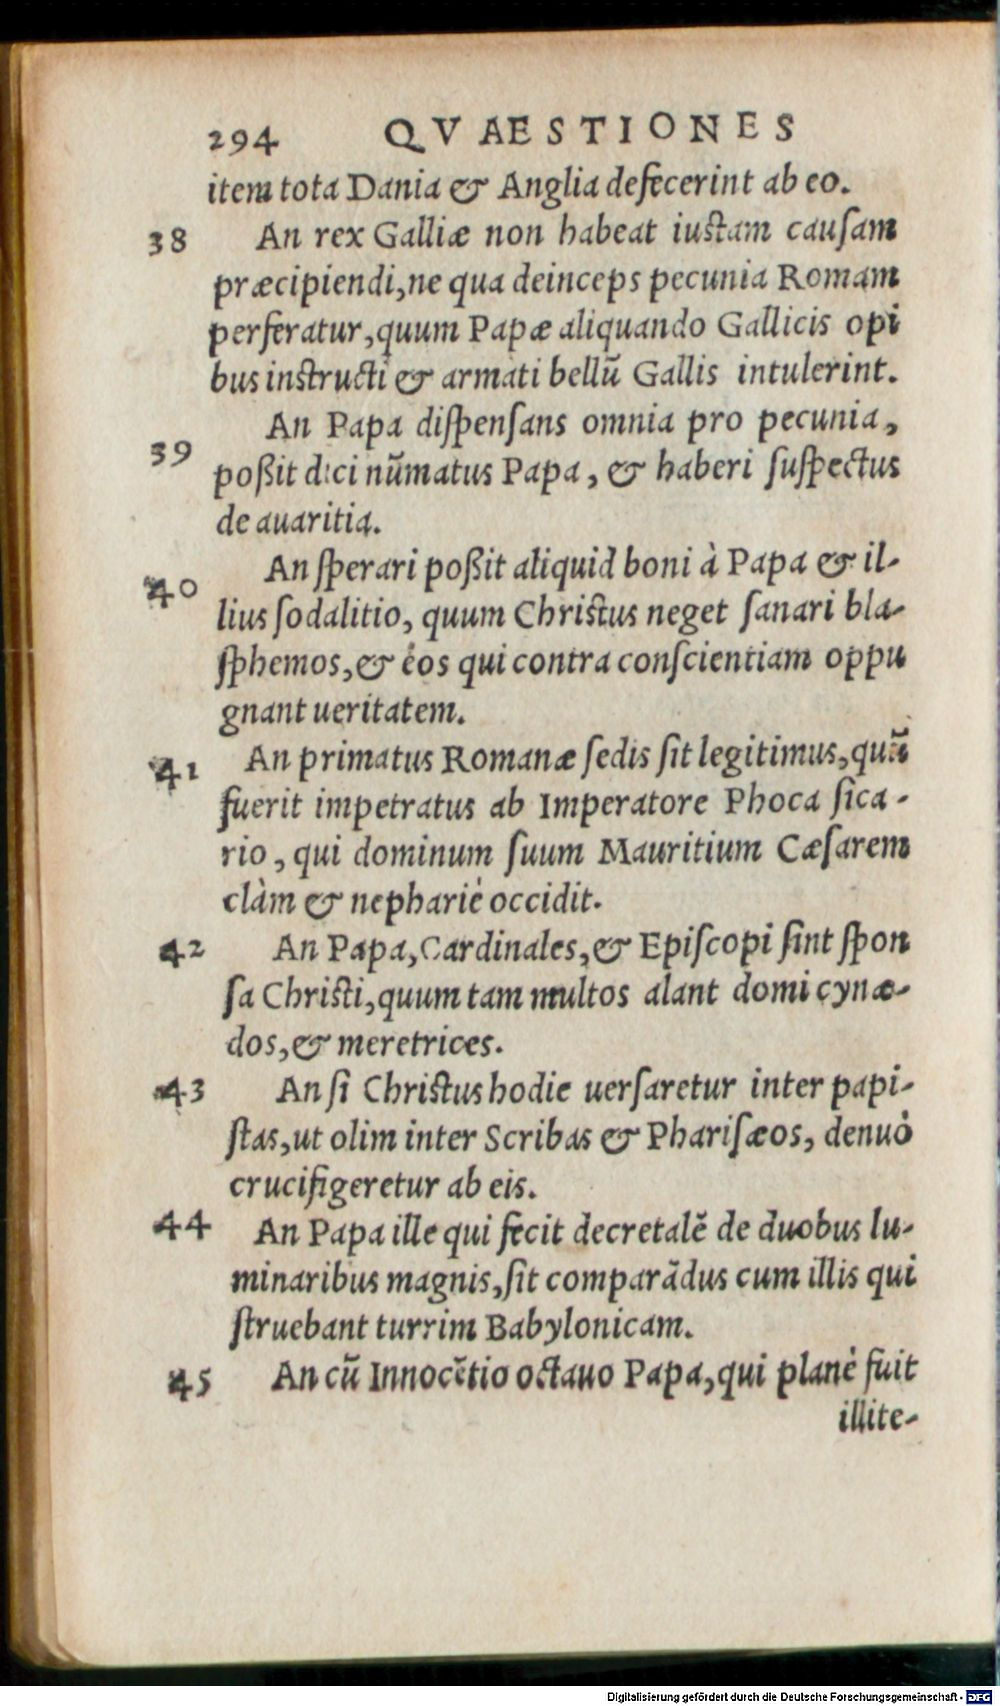 294 QVAESTIONES
item tota Dania & Anglia defecerint ab eo.
38 An rex Galliæ non habeat iustam cauſam
præcipiendi, ne qua deinceps pecunia Romam
perferatur, quum Papæ aliquando Gallicis opi
bus instructi & armati bellũ Gallis intulerint.
39 An Papa diſpenſans omnia pro pecunia,
poßit dici nũmatus Papa, & haberi ſuſpectus
de auaritia.
40 An ſperari poßit aliquid boni à Papa & il-
lius ſodalitio, quum Christus neget ſanari bla-
ſphemos, & eos qui contra conſcientiam oppu
gnant ueritatem.
41 An primatus Romanæ ſedis ſit legitimus, quũ
fuerit impetratus ab Imperatore Phoca ſica-
rio, qui dominum ſuum Mauritium Cæſarem
clàm & nephariè occidit.
42 An Papa, Cardinales, & Epiſcopi ſint ſpon
ſa Christi, quum tam multos alant domi cynæ-
dos, & meretrices.
43 An ſi Christus hodie uerſaretur inter papi-
ſtas, ut olim inter Scribas & Phariſæos, denuò
crucifigeretur ab eis.
44 An Papa ille qui fecit decretalẽ de duobus lu-
minaribus magnis, ſit comparãdus cum illis qui
ſtruebant turrim Babylonicam.
45 An cũ Innocẽtio octauo Papa, qui planè fuit
illite-
Digitalisierung gefördert durch die Deutsche Forschungsgemeinschaft - DFG